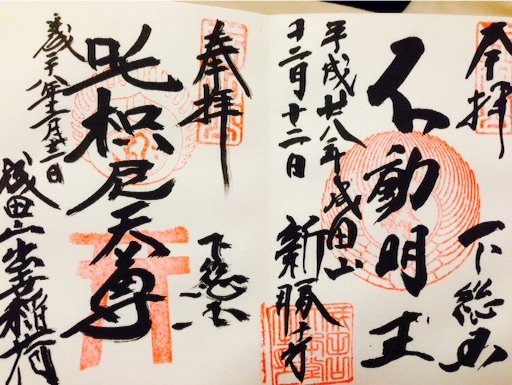 奉拝
下総国
不動明王
平成廿八年
十二月十二日
成田山
新勝寺
奉拝
下総国
吒枳尼天尊
平成二十八年十二月十二日
成田山出世稲荷